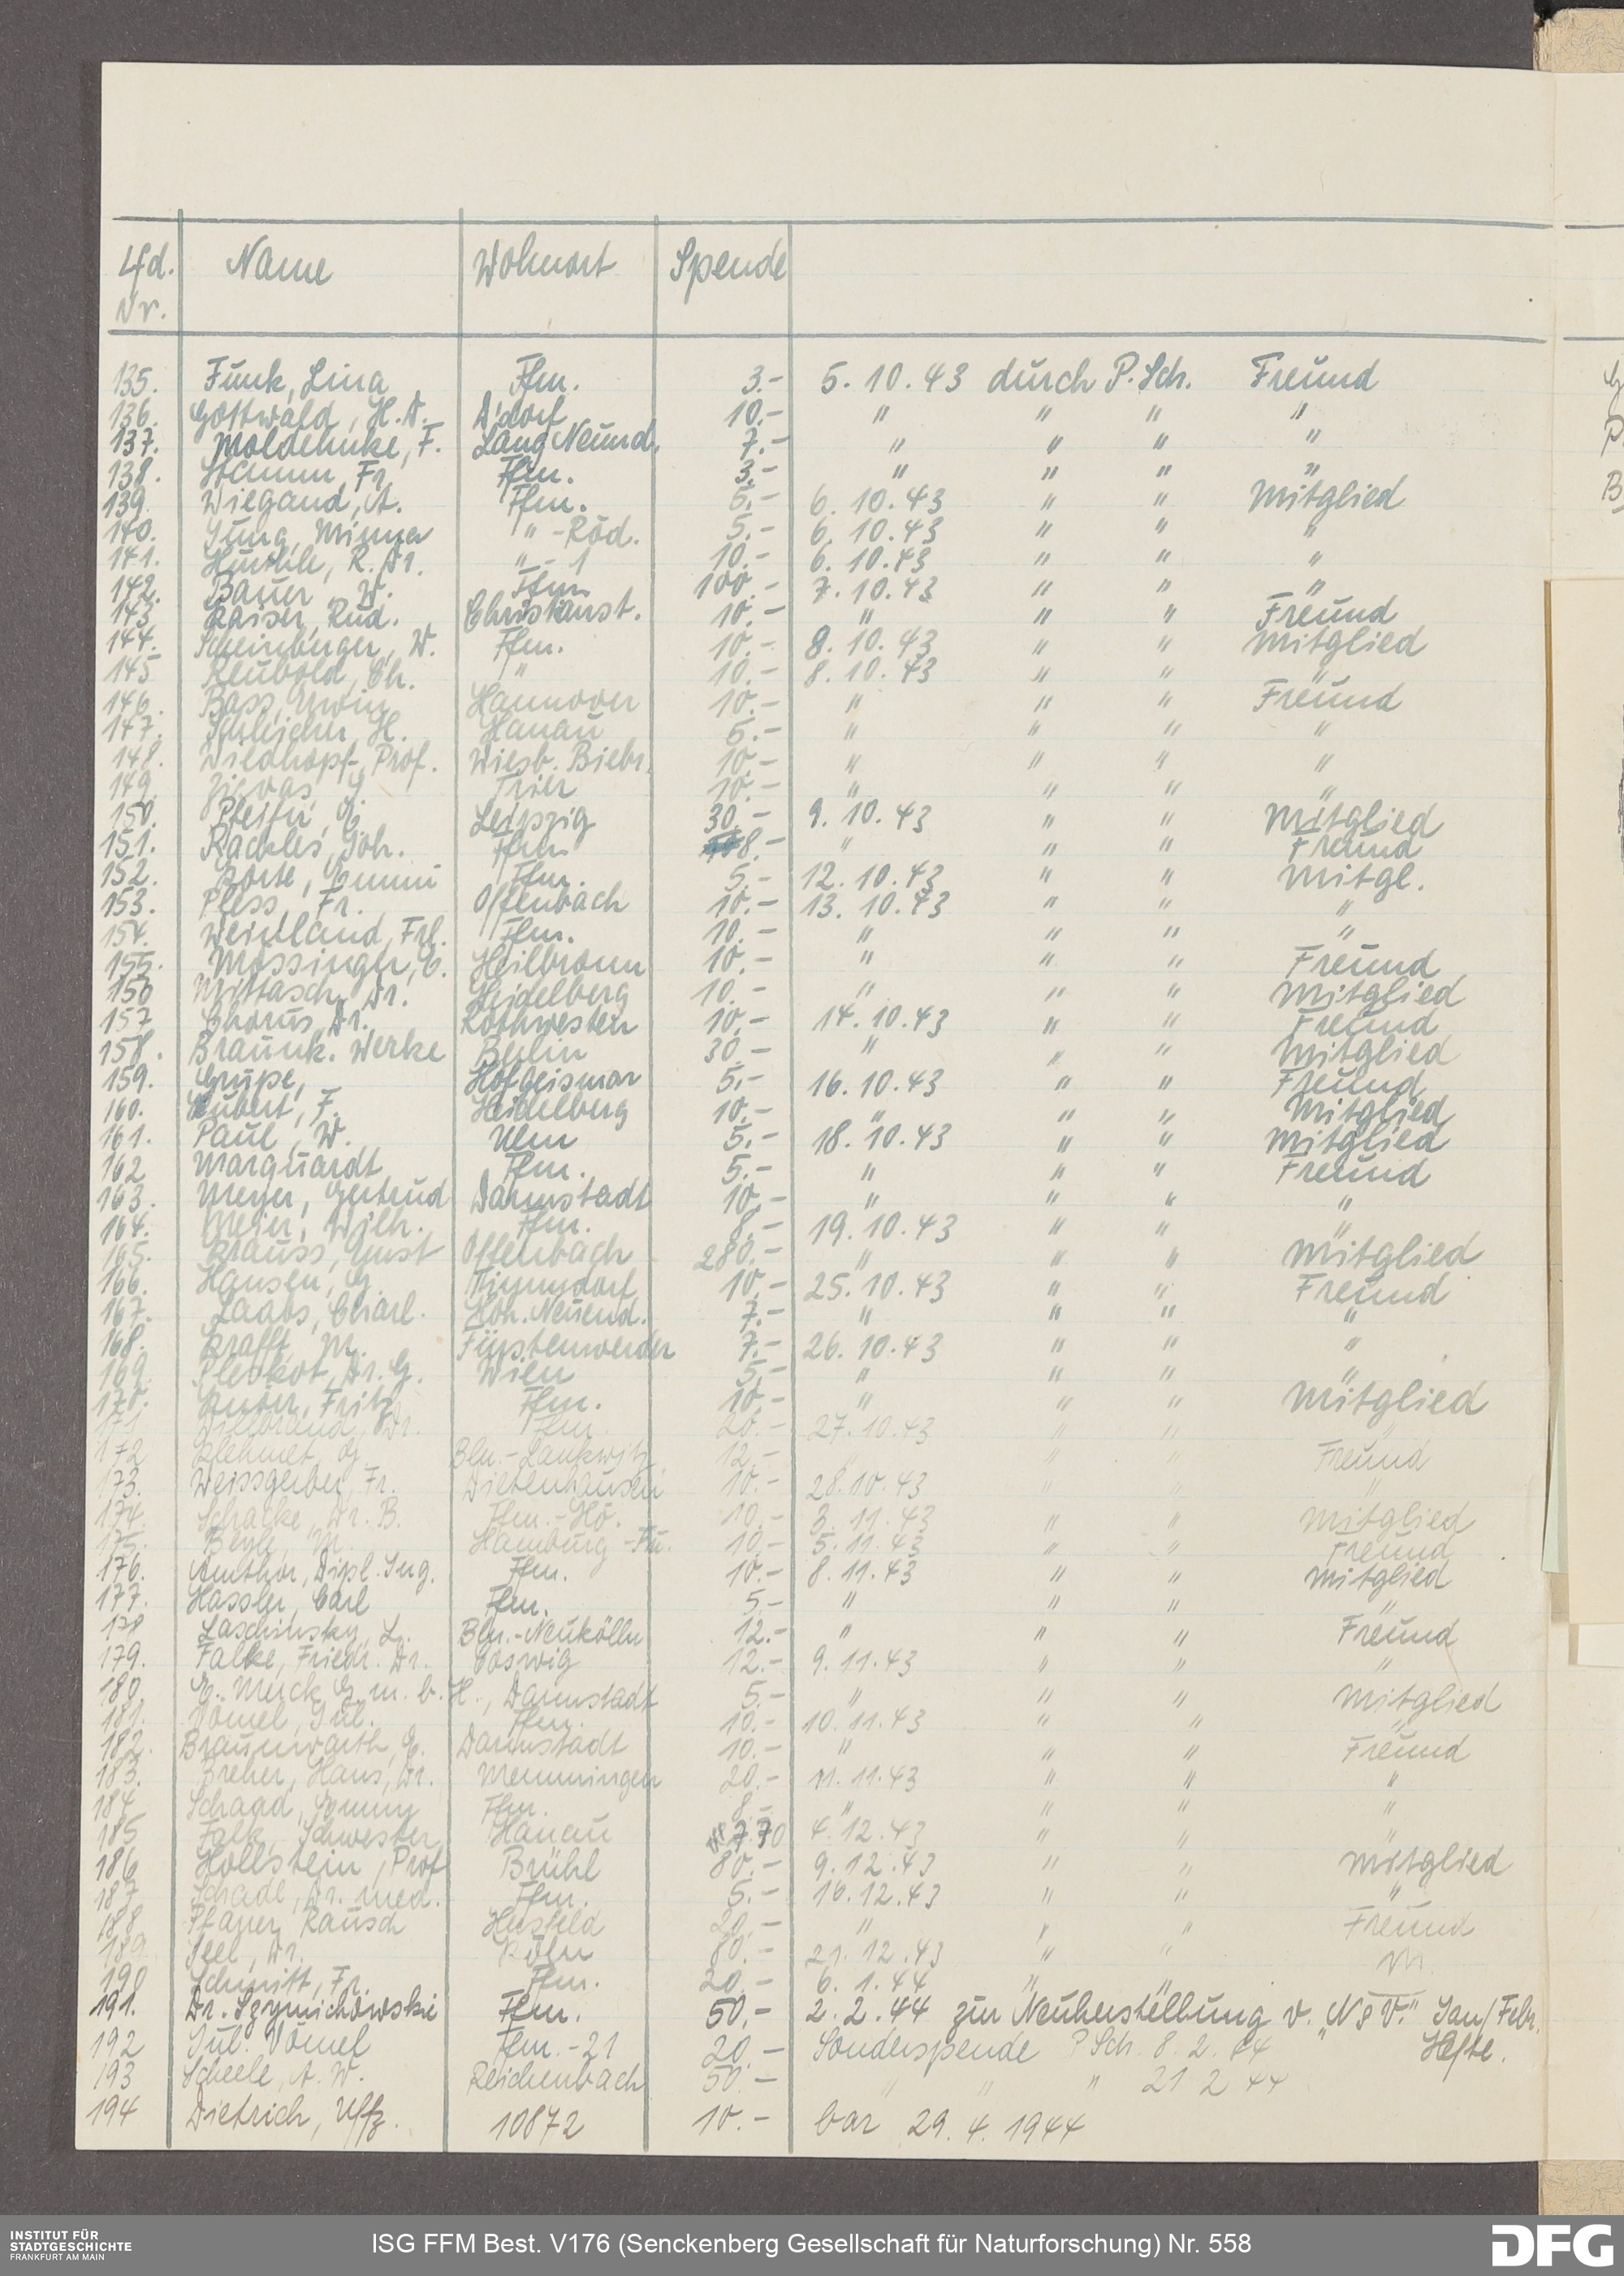 Lfd. Nr. Name Wohnort Spende
135. Funk, Lina Ffm. 3.- 5.10.43 durch P. Sch. Freund
136. Gottwald, H.D. D'dorf 10.- " " " "
137. Moldehnke, F. Lang Neund. 7.- " " " "
138. Stamm, Fr. Ffm. 3.- " " " "
139. Wiegand, A. Ffm. 5.- 6.10.43 " " Mitglied
140. Jung, Minna " -Röd. 5.- 6.10.43 " " "
141. R. Dr. " - 1 10.- 6.10.43 " " "
142. Bauer, W. Ffm 100.- 7.10.43 " " "
143 Kaiser, Rud. 10.- " " " Freund
144. W. Ffm. 10.- 8.10.43 " " Mitglied
145 Reubold, Ch. " 10.- 8.10.43 " " "
146. Bass, Erwin Hannover 10.- " " " Freund
147. Schleicher, H. Hanau 5.- " " " "
148. Wiedhopf, Prof. Wiesb. Biebr. 10.- " " " "
149. Trier 10.- " " " "
150. Leipzig 30.- 9.10.43 " " Mitglied
151. Rackles, Joh. Ffm 8.- " " " Freund
152. Ffm. 5.- 12.10.43 " " Mitgl.
153. Pless, Fr. Offenbach 10.- 13.10.43 " " "
154. Weidland, Frl. Ffm. 10.- " " " "
155. Mössinger, E. Heilbronn 10.- " " " Freund
156 Mittasch, Dr. Heidelberg 10.- " " " Mitglied
157 Chorus, Dr. Rothwesten 10.- 14.10.43 " " Freund
158. Braunk. Werke Berlin 30.- " " " Mitglied
159. Grupe, Hofgeismar 5.- 16.10.43 " " Freund
160. F. Heidelberg 10.- " " " Mitglied
161. Paul, W. Ulm 5.- 18.10.43 " " Mitglied
162 Marquardt Ffm. 5.- " " " Freund
163. Meyer, Gertrud Darmstadt 10.- " " " "
164. Meier, Wilh. Ffm. 8.- 19.10.43 " " "
165. Krauss, Gust Offenbach 280.- " " " Mitglied
166. Hansen, G. Timmdorf 10.- 25.10.43 " " Freund
167. Laabs, Charl. Hoh. Neuend. 7.- " " " "
168. Krafft, M. Fürstenwerder 7.- 26.10.43 " " "
169. Pleskot, Dr. G. Wien 5.- " " " "
170. Fritz Ffm. 10.- " " " Mitglied
171 Hillbrand, Dr. Ffm. 20.- 27.10.43 " " "
172 Bln.-Lankwitz 12.- " " " Freund
173. Weissgerber, Fr. Dietenhausen 10.- 28.10.43 " " "
174. Schacke, Dr. B. Ffm.-Hö. 10.- 3.11.43 " " Mitglied
175. Beyle, M. Hamburg 10.- 5.11.43 " " Freund
176. Amthor, Dipl. Ing. Ffm. 10.- 8.11.43 " " Mitglied
177. Hassler, Carl Ffm. 5.- " " " "
178 Laschinsky, L. Bln.-Neukölln 12.- " " " Freund
179. Falke, Friedr. Dr. Coswig 12.- 9.11.43 " " "
180. E. Merck G.m.b.H., Darmstadt 5.- " " " Mitglied
181. Vömel, Jul. Ffm. 10.- 10.11.43 " " "
182. Braunwarth, E. Darmstadt 10.- " " " Freund
183. Breher, Hans, Dr. Memmingen 20.- 11.11.43 " " "
184. Schaad, Ffm. 8.- " " " "
185 Falk, Schwester Hanau 7.70 4.12.43 " " "
186 Hollstein, Prof Brühl 80.- 9.12.43 " " Mitglied
187 Schade, Dr. med. Ffm. 5.- 16.12.43 " " "
188 Pfarrer Rausch Hersfeld 20.- " " " Freund
189. Seel, Dr. Köln 80.- 21.12.43 " " M.
190 Schmitt, Fr. Ffm. 20.- 6.1.44 " " "
191. Dr. Szymichowski Ffm. 50.- 2.2.44 zur Neuherstellung v. "N&V." Jan/Febr.
Hefte.
192 Jul. Vömel Ffm.-21 20.- Sonderspende P Sch. 8.2.44
193 Scheele, A.W. Reichenbach 50.- " " " 21 2 44
194 Dietrich, Uffz. 10872 10.- bar 29.4.1944
INSTITUT FÜR
STADTGESCHICHTE
FRANKFURT AM MAIN
ISG FFM Best. V176 (Senckenberg Gesellschaft für Naturforschung) Nr. 558
DFG